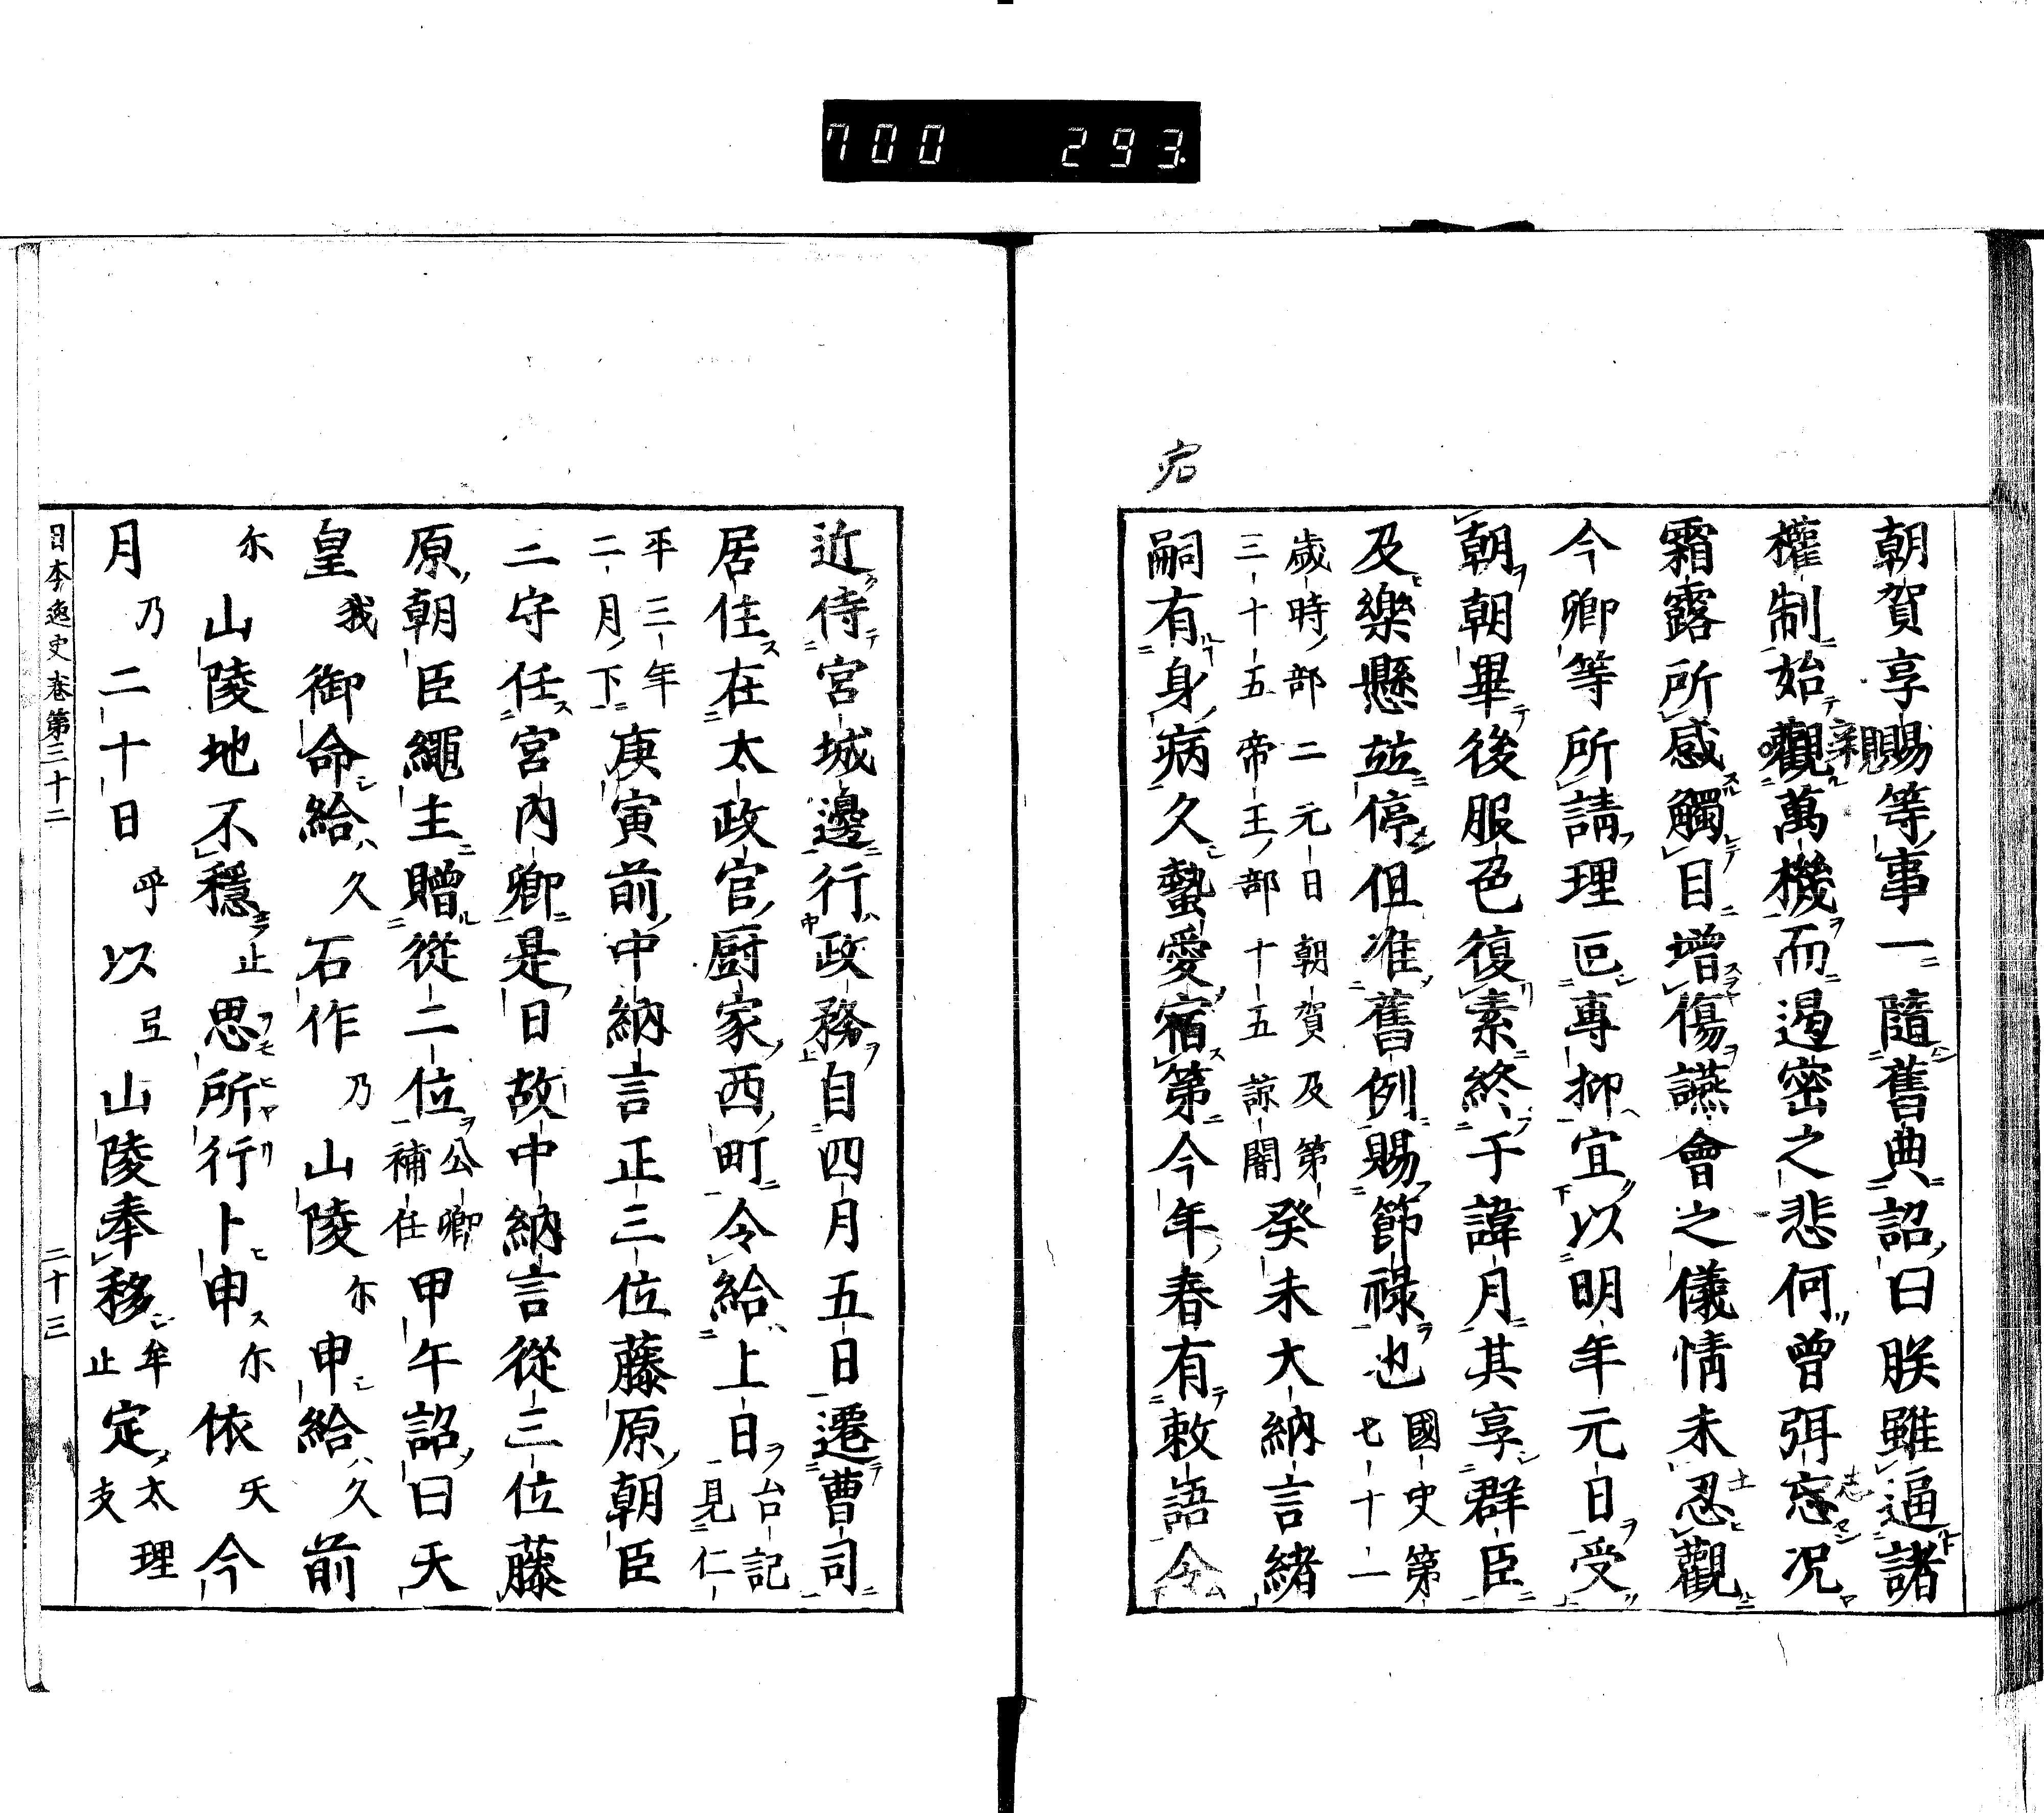 700 293
朝賀享賜等事一隨舊典詔曰朕雖逼諸
權制始覩萬機而遏密之悲何曾弭忘况
霜露所感觸目增傷讌會之儀情未忍觀
今卿等所請理叵專抑宜以明年元日受
朝朝畢後服色復素終于諱月其享群臣
及樂懸竝停但准舊例賜節祿也國史第七十一
歲時部二元日朝賀及第三十五帝王部十五諒闇癸未大納言緒
嗣有身病久蟄愛宿第今年春有敕語令
近侍宮城邊行政務自四月五日遷曹司
居住在太政官厨家西町令給上日台記一見仁
平三年二月下庚寅前中納言正三位藤原朝臣
二守任宮內卿是日故中納言從三位藤
原朝臣繩主贈從二位公卿補任甲午詔曰天
皇我御命給久石作乃山陵尓申給久前
尓山陵地不穩止思所行卜申尓依天今
月乃二十日乎以弖山陵奉移牟止定太理支
日本逸史卷第三十二 二十三